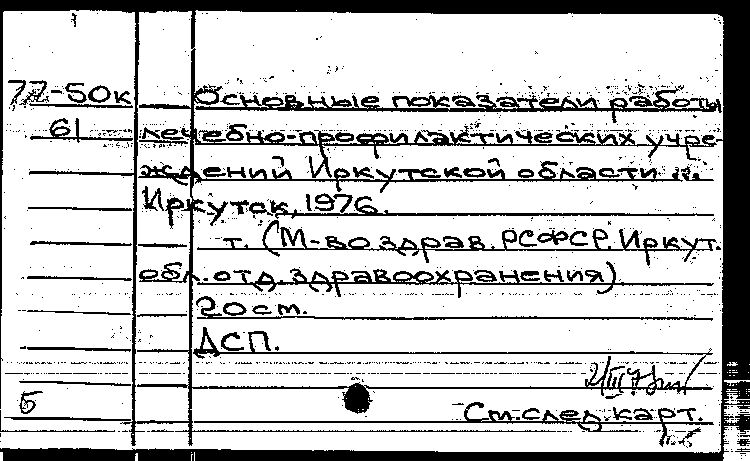 77-50к Основные показатели работы
61 лечебно-профилактических учре-
ждений Иркутской области ...
Иркутск, 1976.
т. (М-во здрав. РСФСР. Иркут.
обл. отд. здравоохранения)
20 см.
ДСП.
Б См. след. карт.